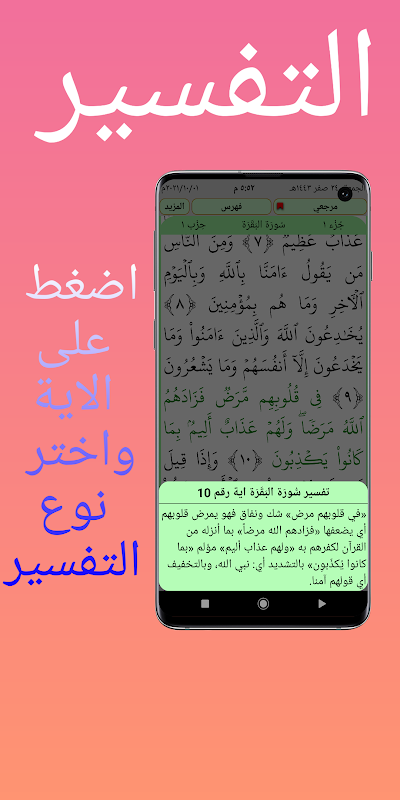 التفسير
الجمعة ٢٤ صفر ١٤٤٣هـ ٥:٥٢ م ٢٠٢١/١٠/٠١م
مرجعي فهرس المزيد
جُزء ١ سُورَة البَقَرَة حزب ١
عَذَابٌ عَظِيمٌ ﴿٧﴾ وَمِنَ النَّاسِ
مَن يَقُولُ ءَامَنَّا بِٱللَّهِ وَبِٱلۡيَوۡمِ
ٱلۡأٓخِرِ وَمَا هُم بِمُؤۡمِنِينَ ﴿٨﴾
يُخَٰدِعُونَ ٱللَّهَ وَٱلَّذِينَ ءَامَنُواْ وَمَا
يَخۡدَعُونَ إِلَّآ أَنفُسَهُمۡ وَمَا يَشۡعُرُونَ
﴿٩﴾ فِي قُلُوبِهِم مَّرَضٞ فَزَادَهُمُ
ٱللَّهُ مَرَضٗاۖ وَلَهُمۡ عَذَابٌ أَلِيمُۢ بِمَا
كَانُواْ يَكۡذِبُونَ ﴿١٠﴾ وَإِذَا قِيلَ
تفسير سُورَة البَقَرَة اية رقم 10
«في قلوبهم مرض» شك ونفاق فهو يمرض قلوبهم
أي يضعفها «فزادهم الله مرضاً» بما أنزله من
القرآن لكفرهم به «ولهم عذاب أليم» مؤلم «بما
كانوا يُكذّبون» بالتشديد أي: نبي الله، وبالتخفيف
أي قولهم آمنا.
اضغط
على
الاية
واختر
نوع
التفسير